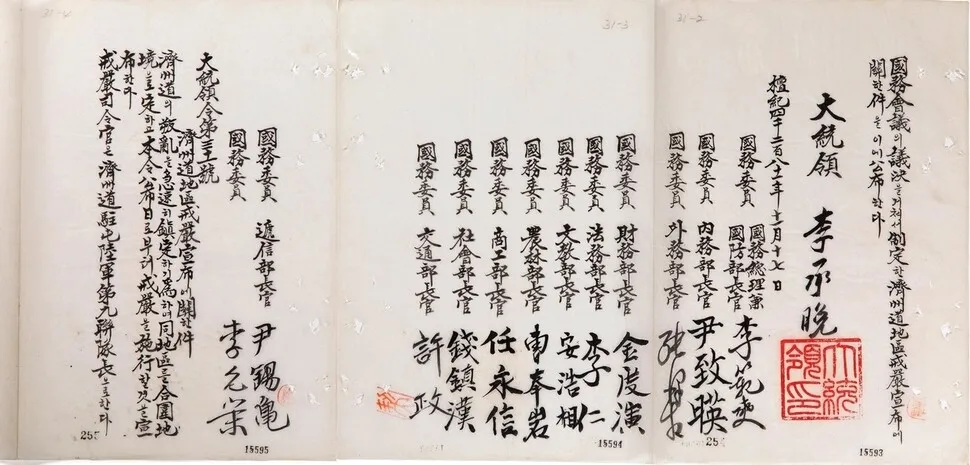 31-2
國務會議의議決을거쳐서制定한濟州道地區戒嚴宣布에
關한件을이에公布한다
大統領 李承晩
大統領印
檀紀四千二百八十一年十一月十七日
國務委員 國務總理兼
國防部長官 李範奭
國務委員 內務部長官 尹致暎
國務委員 外務部長官 張澤相
15593
254
31-3
國務委員 財務部長官 金度演
國務委員 法務部長官 李仁
國務委員 文教部長官 安浩相
國務委員 農林部長官 曺奉岩
國務委員 商工部長官 任永信
國務委員 社會部長官 錢鎮漢
國務委員 交通部長官 許政
15594
31-4
國務委員 遞信部長官 尹錫龜
國務委員 李允榮
大統領令第三十一號
濟州道地區戒嚴宣布에關한件
濟州道의叛亂을急速히鎮定하기爲하여同地區를合圍地
境으로定하고本令公布日로부터戒嚴을施行할것을宣
布한다
戒嚴司令官은濟州道駐屯陸軍第九聯隊長으로한다
15595
255